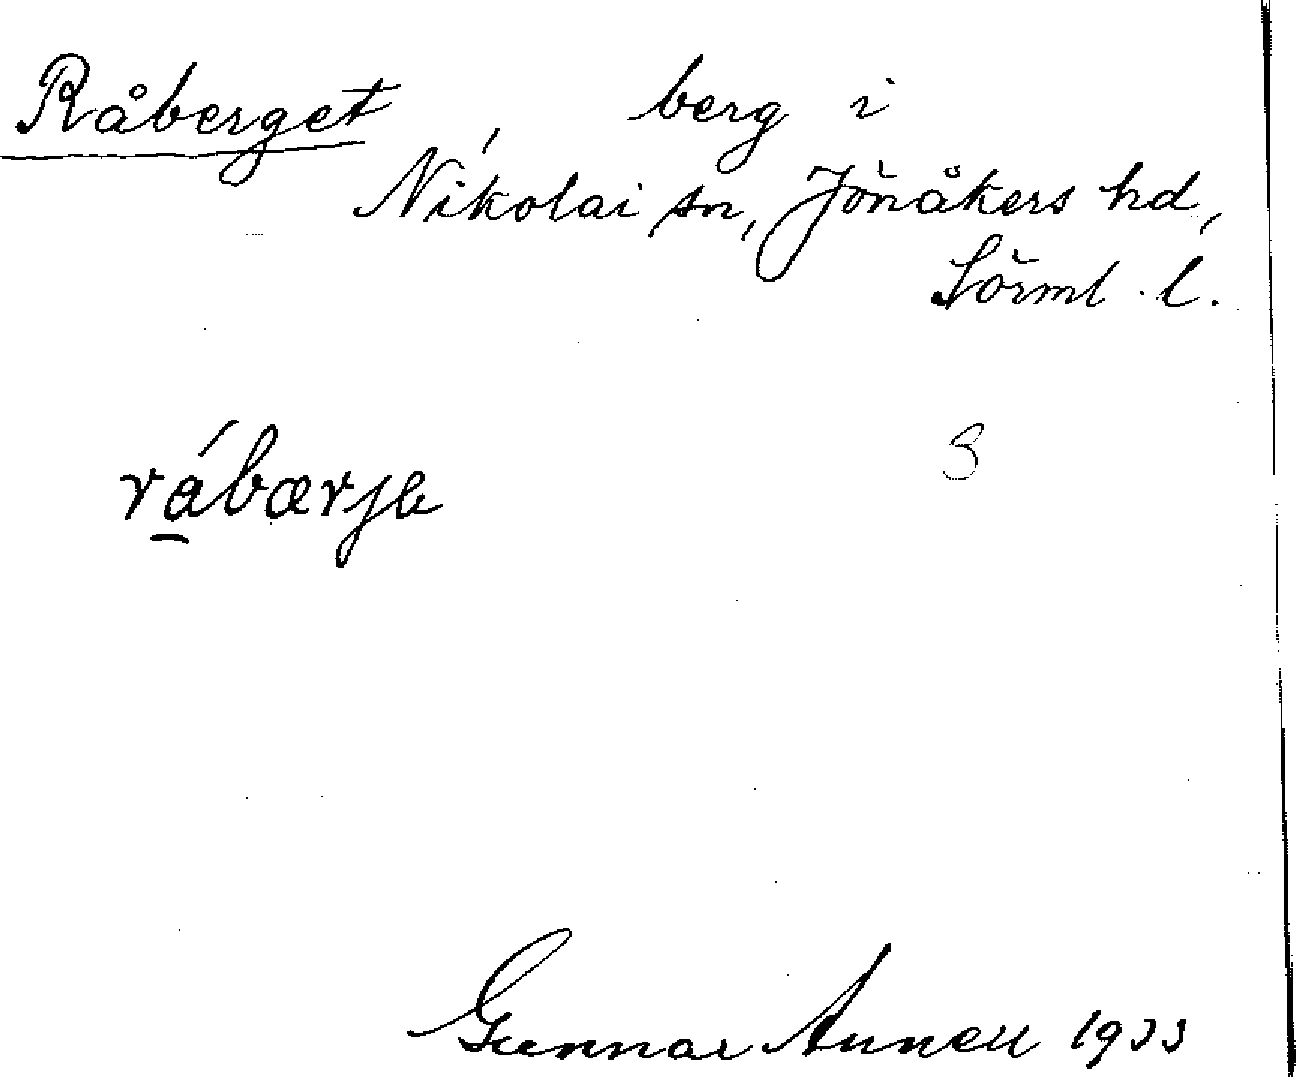 Råberget berg i
Nikolai sn, Jönåkers hd,
Sörml. l.
rábærjə
S
Gunnar Annell 1933